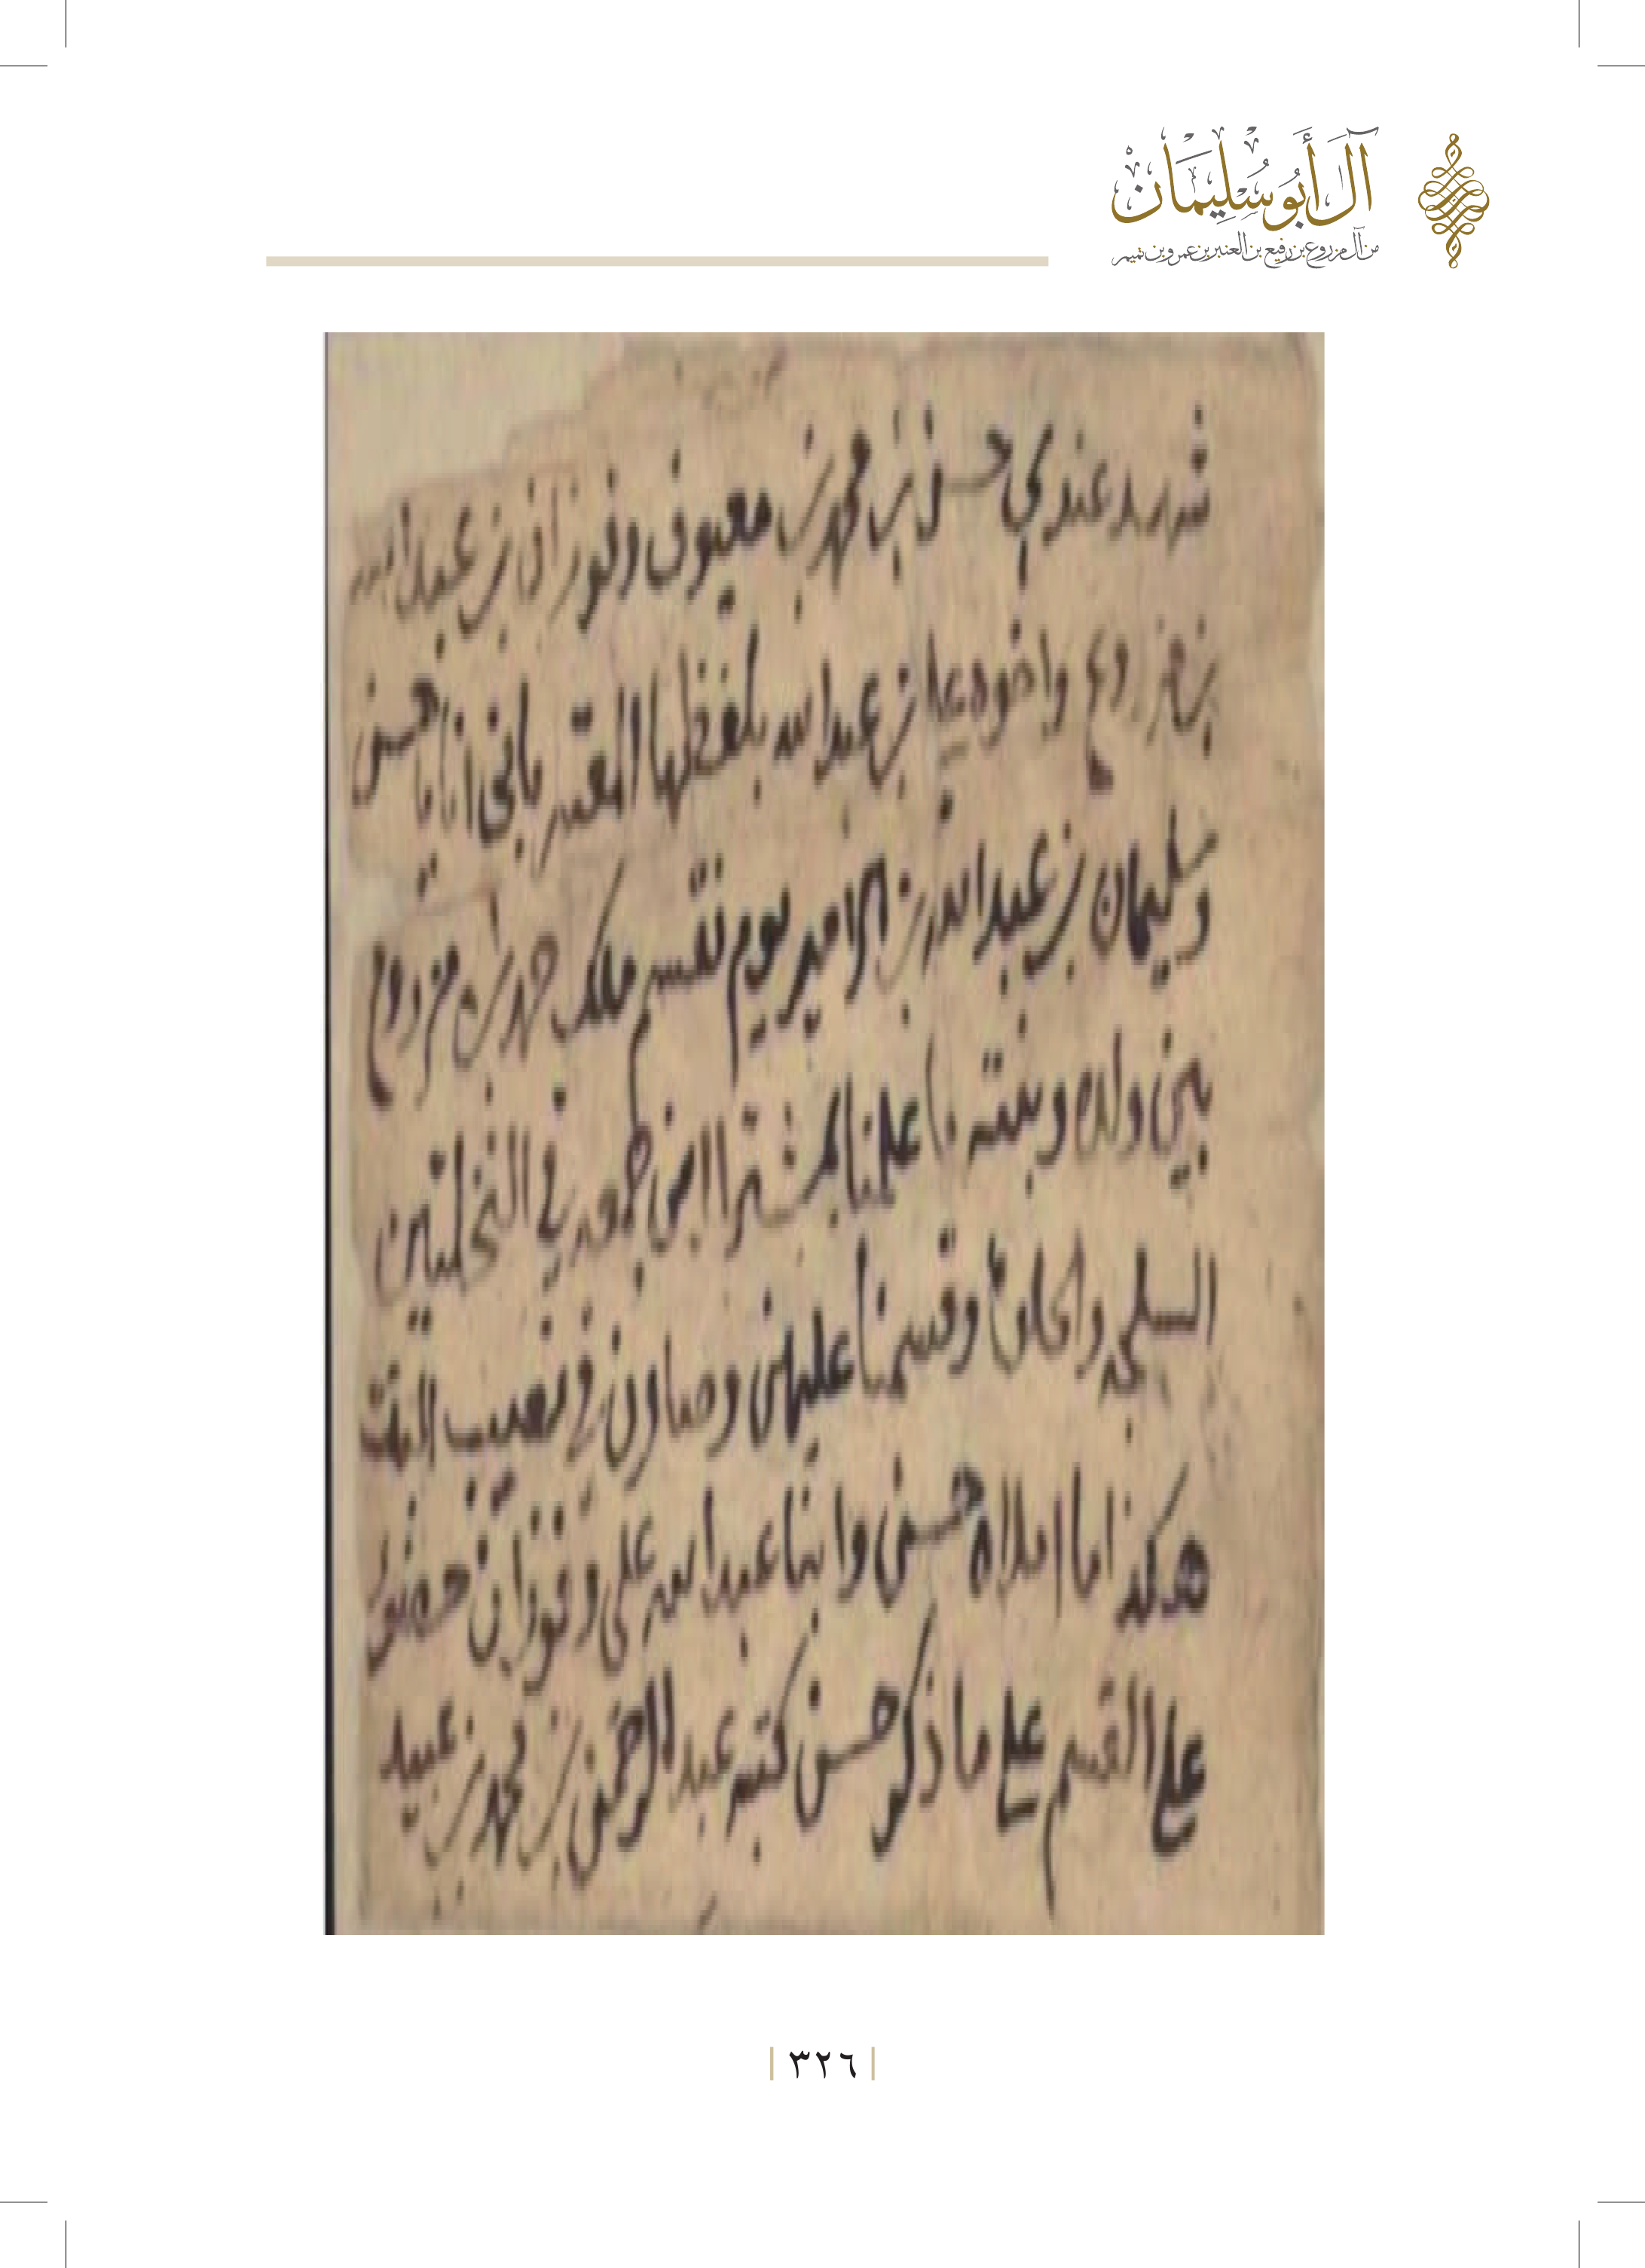 آلَ أَبُو سُلِيمَان
من آل مزروع بن رفيع بن العنبر بن عمرو بن تميم
شهد عندي حسن بن محمد بن معيوف وفوزان بن عبدالله
بن مزروع واخوه علي بن عبدالله بلفظها المعتبر باني انا يا حسن
وسليمان بن عبدالله بن الامير يوم نقسم ملك حمد بن مزروع
بين ولده وبنته علمنا في النخلتين
وقسمنا عليهن وصارن في نصيب البنت
هكذا ما املاه حسن وابنا عبدالله علي وفوزان حضور
على القسم على ما ذكر حسن كتبه عبدالرحمن بن محمد بن عبيد
٣٢٦